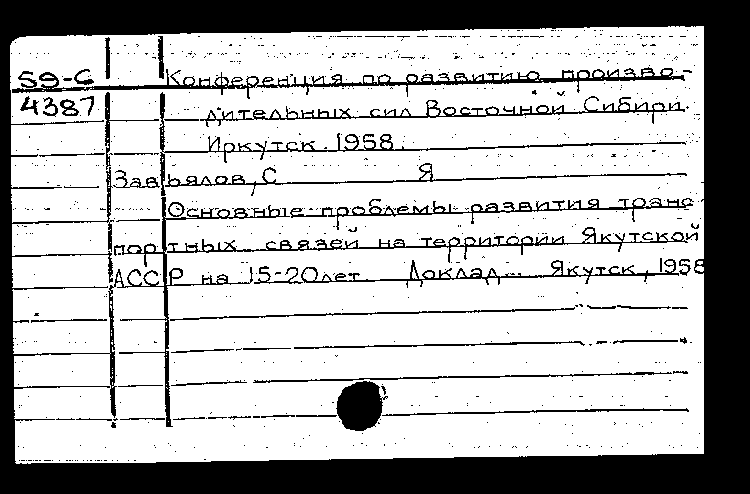 59-С Конференция по развитию произво-
4387 дительных сил Восточной Сибири.
Иркутск. 1958.
Завьялов, С Я
Основные проблемы развития транс-
портных связей на территории Якутской
АССР на 15-20 лет. Доклад... Якутск, 1958